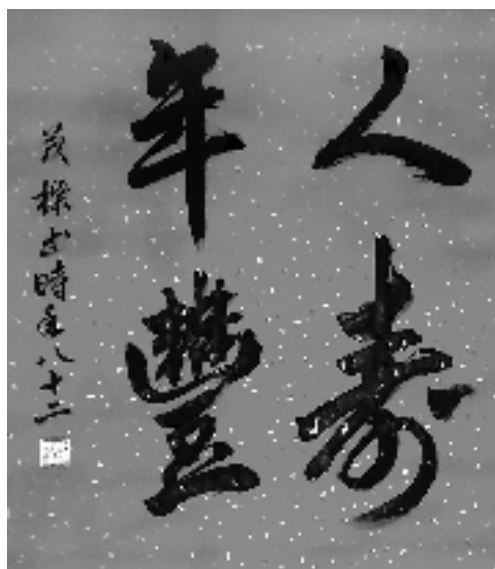 人壽
年豐
茂書時年八十二